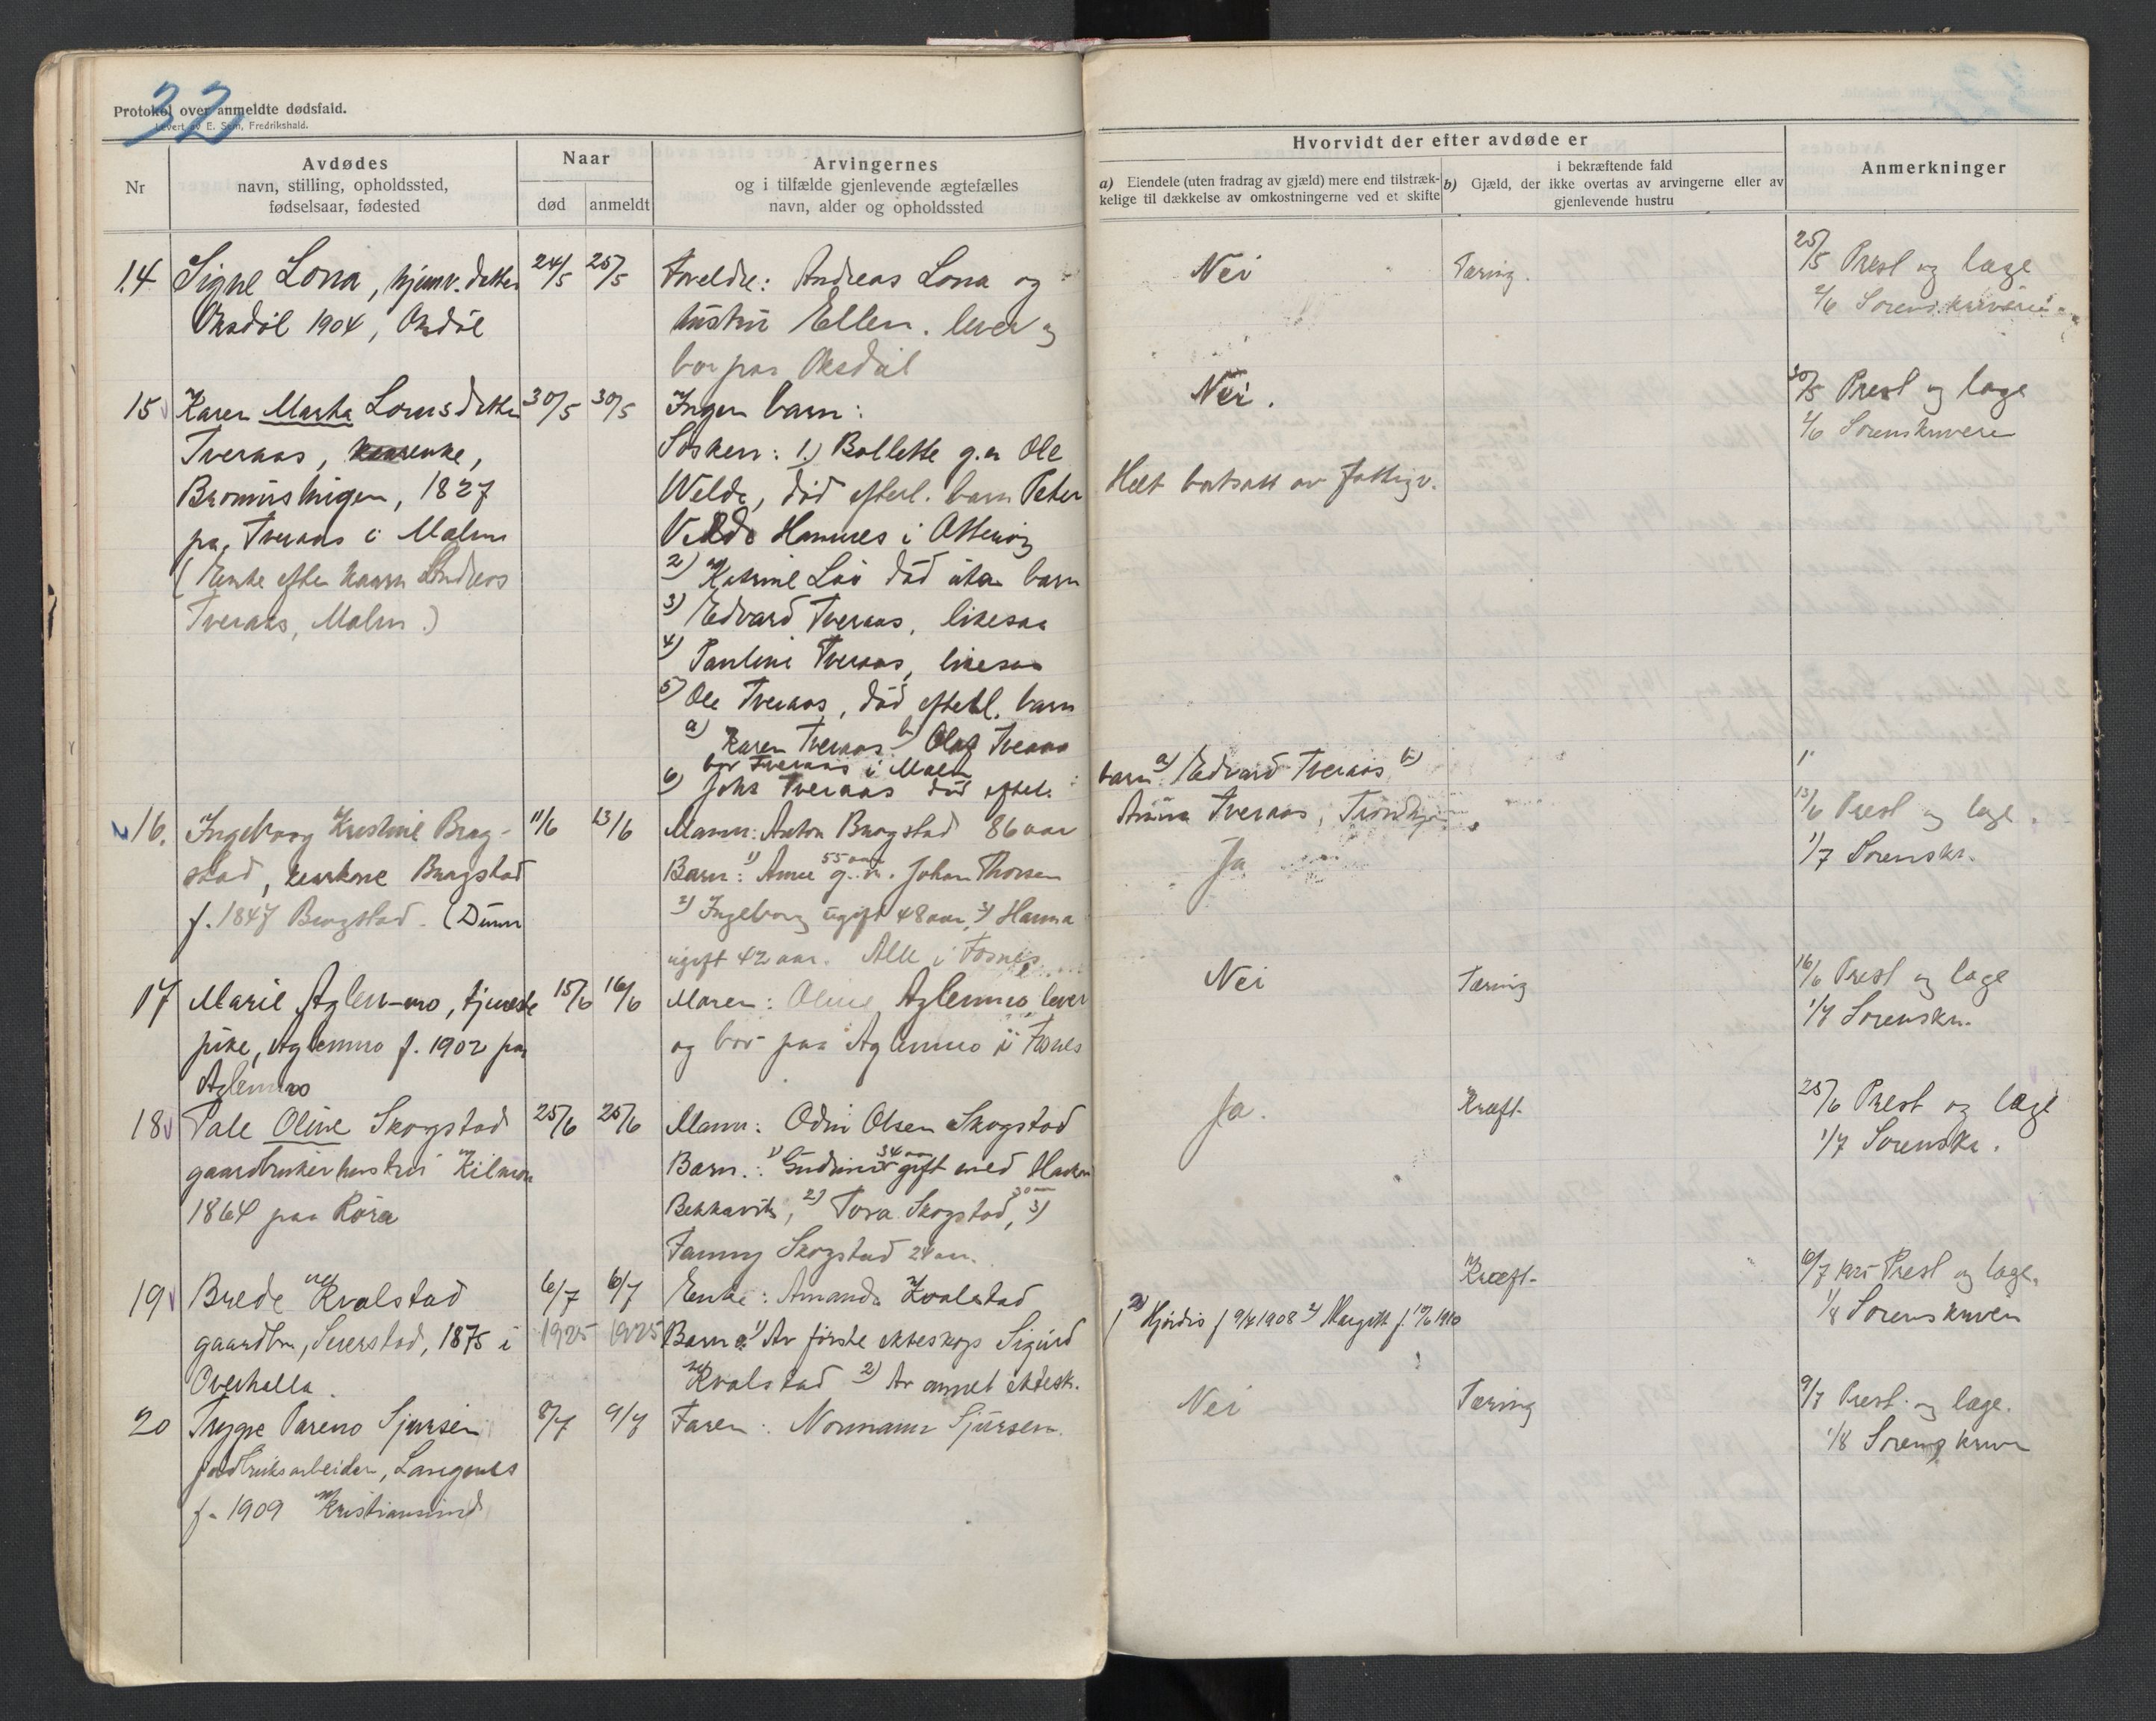 32
Protokol over anmeldte dødsfald.
Levert av E. Sem, Fredrikshald.
Nr
Avdødes
navn, stilling, opholdssted,
fødselsaar, fødested
Naar
død
anmeldt
Arvingernes
og i tilfælde gjenlevende ægtefælles
navn, alder og opholdssted
Hvorvidt der efter avdøde er
a) Eiendele (uten fradrag av gjæld) mere end tilstræk-
kelige til dækkelse av omkostningerne ved et skifte
i bekræftende fald
b) Gjæld, der ikke overtas av arvingerne eller av
gjenlevende hustru
Anmerkninger
14 Signe Lona, hjemv. datter
Oksdøl 1904, Oksdöl
24/5 25/5
Foreldre: Andreas Lona og
hustru Ellen. lever og
bor paa Oksdal
Nei
Tæring.
25/5 Prest og læge
2/6
15 Karen Marta Lornsdatter
Tveraas, enke,
1827
paa Tveraas i Malm
(Enke efter Lindeos
Tveraas, Malm.)
30/5 30/5
Ingen barn:
Søsken: 1.) Bollette g. m Ole
Welde, död efterl. barn Peter
i Otterøy
2) Katrine död uten barn
3) Edvard Tveraas, likesaa
4) Pauline Tveraas, likesaa
5) Ole Tveraas, död efterl. barn
a) Karen Tveraas b) Olaf Tveraas
bor Tveraas i Malm
6) Johs Tveraas död efterl.
barn a) Edvard Tveraas b)
Anna Tveraas, Trondhjem
Nei.
Helt bortsatt av fattigv.
30/5 Prest og læge
2/6 Sorenskriveren
16. Ingeborg Kristine Brag-
stad, Bragstad
f. 1847 Bragstad. (Duun
11/6 13/6
Mann: Anton Bragstad 86 aar
Barn: 1) Anne 55 aar g. m. Johan Thorsen
2) Ingeborg ugift 48 aar, 3) Hanna
ugift 42 aar. Alle i Fosnes
Ja
13/6 Prest og læge.
1/7 Sorenskr.
17 Marie Aglen-mo, tjeneste
pike, Aglenmo f. 1902 paa
Aglenmo
15/6 16/6
Moren: Oline Aglenmo, lever
og bor paa Aglenmo i Fosnes
Nei
Tæring
16/6 Prest og læge
1/7 Sorenskr.
18 Pale Oline Skogstad
gaardbrukerhustru
1864 paa Röra
25/6 25/6
Mann: Odin Olsen Skogstad
Barn: 1) 34 aar gift med
2) Tora Skogstad, 30 aar 3)
Fanny Skogstad 24 aar.
Ja.
Kræft.
25/6 Prest og læge
1/7 Sorenskr.
19 Brede Kvalstad
gaardbr, Seierstad, 1875 i
Overhalla.
6/7 1925 6/7 1925
Enke: Amanda Kvalstad
Barn a: 1) Av første ekteskap Sigurd
Kvalstad 2) Av annet ektesk.
Hjördis f 9/4 1908 2) Margith f. 19/6 1910
Kræft.
6/7 1925 Prest og læge.
1/8 Sorenskriven
20 Trygve Pareno Sjursen
jordbruksarbeider, Langenes
f. 1909 Kristiansund
8/7 9/7
Faren: Normann Sjursen.
Nei
Tæring
9/7 Prest og læge.
1/8 Sorenskriver